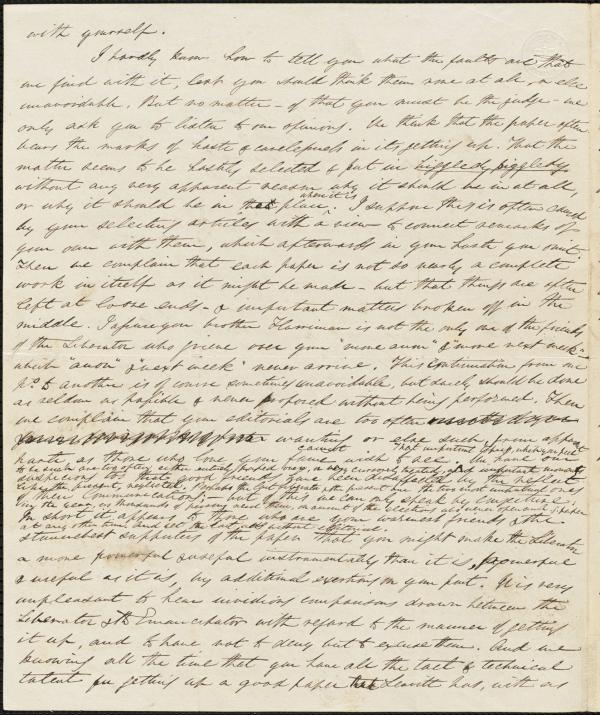 with yourself.
I hardly know how to tell you what the faults are that
we find with it, lest you should think them none at all, or else
unavoidable. But no matter - of that you must be the judge - we
only ask you to listen to our opinions. We think that the paper often
bears the marks of haste & carelessness in its getting up. That the
matter seems to be hastily selected & put in higgledy piggledy,
without any very apparent reason why it should be in at all,
or why it should be in the place where it is. I suppose this is often caused
by your selecting articles with a view to connect remarks of
your own with them, which afterwards in your haste you omit.
Then we complain that each paper is not so nearly a complete
work in itself as it might be made - but that things are often
left at loose ends - & important matters broken off in the
middle. I assure you brother Harriman is not the only one of the friends
of the Liberator who grieve over your "more anon" & "more next week" -
which "anon" & "next week" never arrive. This continuation from one
No to another is of course sometimes unavoidable, but surely should be done
as seldom as possible & never proposed without being performed. Then
we complain that your editorials are too often
wanting or else such, from apparent
haste, as those who love your fame cannot wish to see. That important topics, which you
to be such are too often either entirely passed over, or very cursorily treated, & important moments
suspicion that good friends have been disaffected by the neglect
of their communications; but of this we can only speak by conjecture.
In short it appears to those who are your warmest friends & the
staunchest supporters of the paper that you might make the Liberator
a more powerful & useful instrumentality than it is, powerful
& useful as it is, by additional exertions on your part. It is very
unpleasant to hear invidious comparisons drawn between the
Liberator & the Emancipator with regard to the manner of getting
it up, and to have not to deny but to excuse them. And we
knowing all the time that you have all the tact & technical
talent for getting up a good paper that Leavitt has, with as